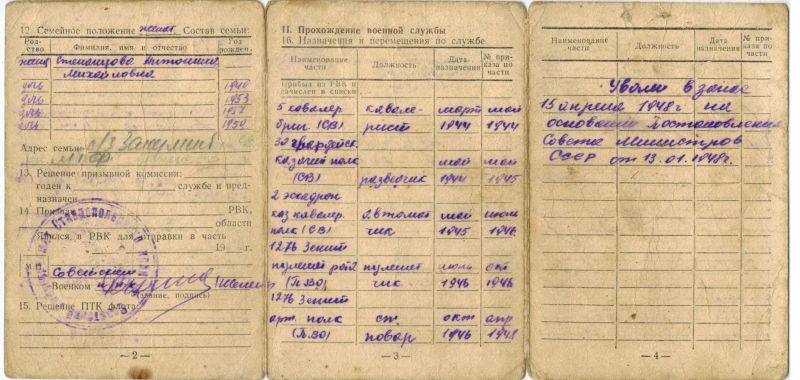 12. Семейное положение женат Состав семьи:
Родство Фамилия, имя и отчество Год рожден.
жена Степанцова Антонина
Михайловна
дочь 1940
дочь 1953
дочь 1957
дочь 1950
Адрес семьи
13. Решение призывной комиссии:
годен к службе и пред-
назначен
14. Призван РВК,
области
Явился в РВК для отправки в часть
19 г.
М.П. Советский
Военком
(звание, подпись)
15. Решение ПТК флота:
— 2 —
II. Прохождение военной службы
16. Назначения и перемещения по службе
Наименование части Должность Дата назначения № приказа по части
Прибыл из РВК и
зачислен в списки
5 кавалер кавале- март май
бриг (СВ) рист 1944 1944
30 гвардейск.
казачий полк май май
(СВ) разведчик 1944 1945
2 эскадрон
каз кавалер. автомат май июнь
полк (СВ) чик 1945 1946
1276 Зенит
пулемет рота пулемет июль окт
(ПВО) чик 1946 1946
1276 Зенит
арт. полк ст. окт апр
(ПВО) повар 1946 1948
— 3 —
Наименование части Должность Дата назначения № приказа по части
Уволен в запас
15 апреля 1948 г на
основании Постановления
Совета Министров
СССР от 13.01.1948г.
— 4 —